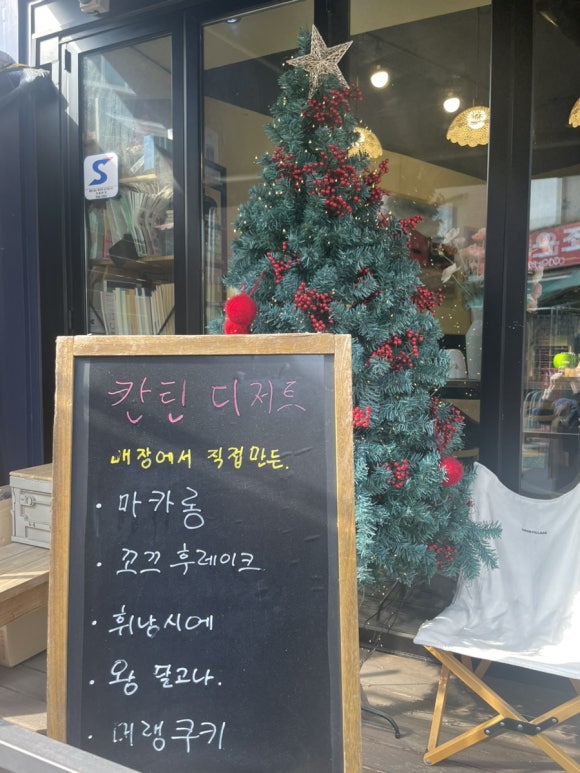 칸틴 디저트
매장에서 직접만든.
· 마카롱
· 꼬끄 후레이크
· 휘낭시에
· 왕 달고나.
· 머랭쿠키
S